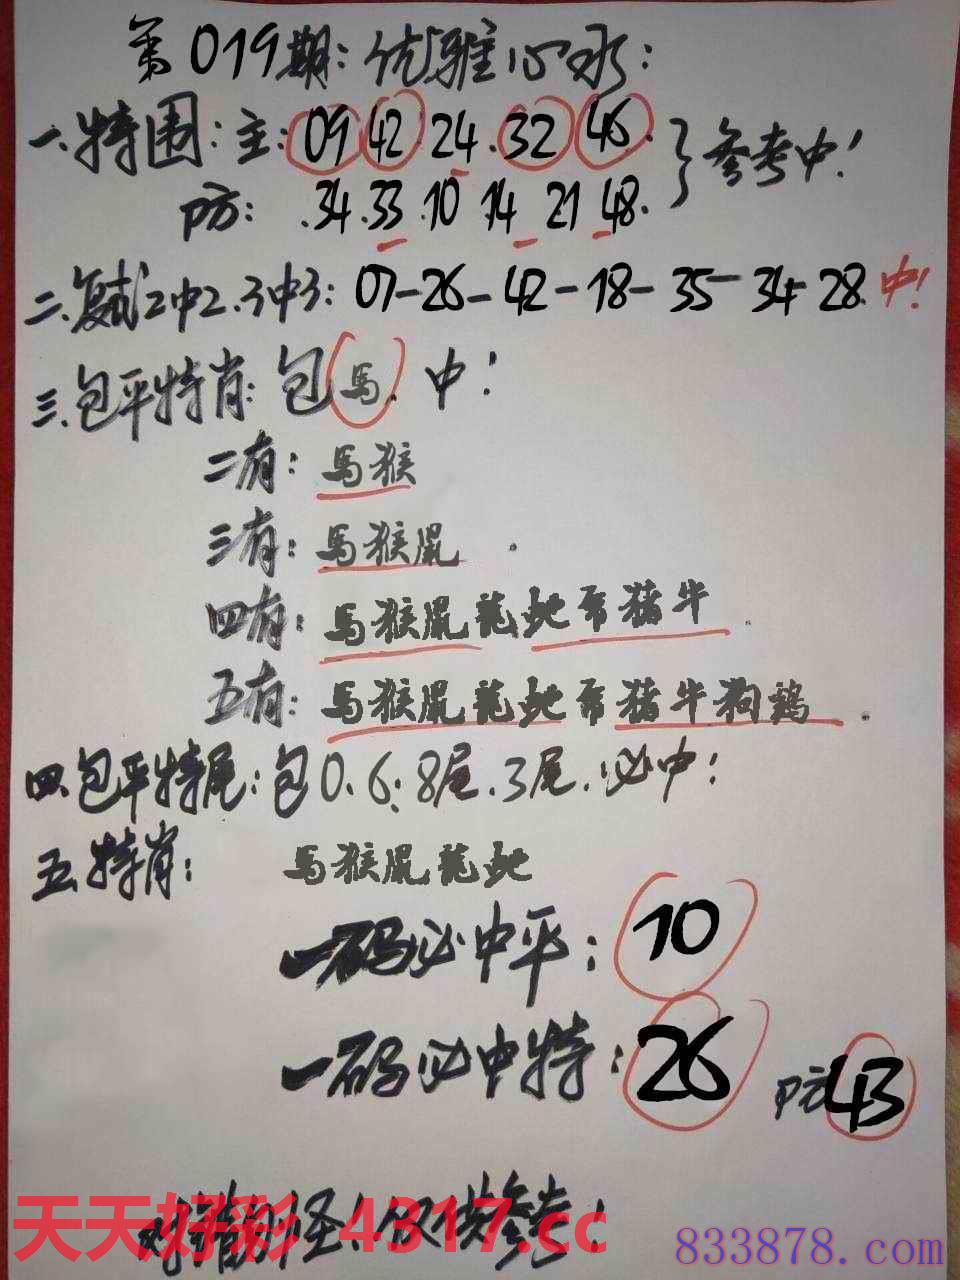 第019期:优雅心水:
一.特围:主:09 42 24.32 46.
参考中!
防: .34.33.10 14 21 48.
二.复式2中2.3中3:07-26-42-18-35-34-28.中!
三.包平特肖:包馬.中!
二有:馬猴
三有:馬猴鼠.
四有:馬猴鼠龍蛇席猪牛.
五有:馬猴鼠龍蛇席猪牛狗鶏.
四.包平特尾:包0.6:8尾.3尾.必中!
五.特肖: 馬猴鼠龍蛇
一码必中平:10
一码必中特:26 防43
对错别怪!仅供参考!
天天好彩 4317.cc
833878.com